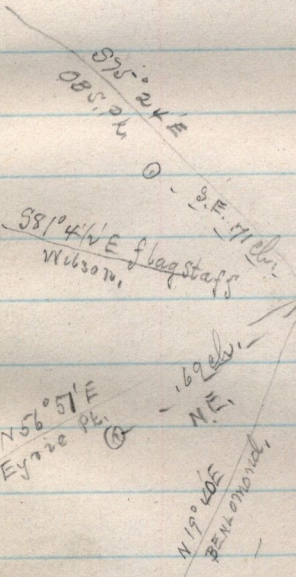 S75° 24' E
OBS. Pk
S.E. 71 chn.
S81° 41½' E flagstaff
Wilson.
.69 chn.
N.E.
N56° 51' E
Eyrie Pt.
N19° 40 E
BENLOMOND.